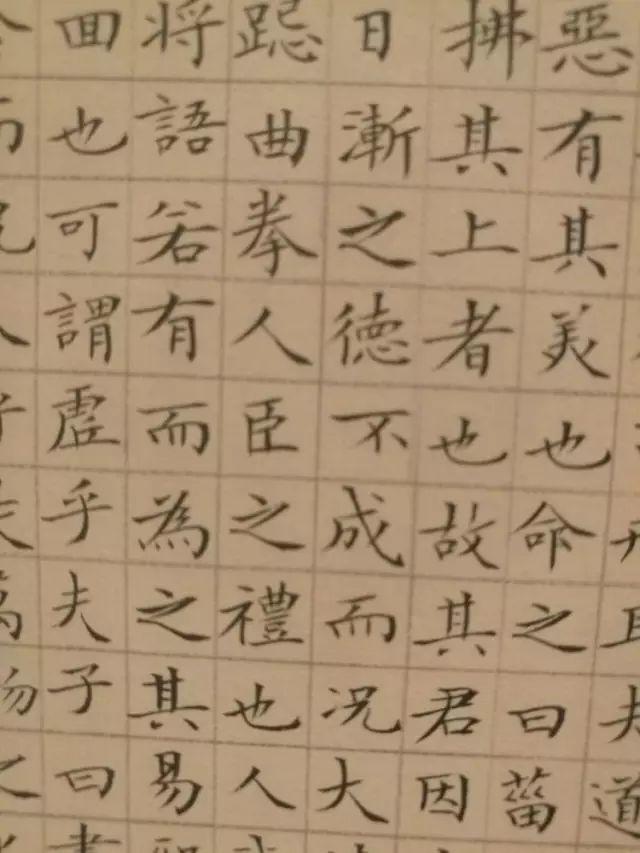 道
惡有其美也命之曰菑
拂其上者也故其君因
日漸之徳不成而况大
跽曲拳人臣之禮也人
将語若有而為之其易
回也可謂虛乎夫子曰